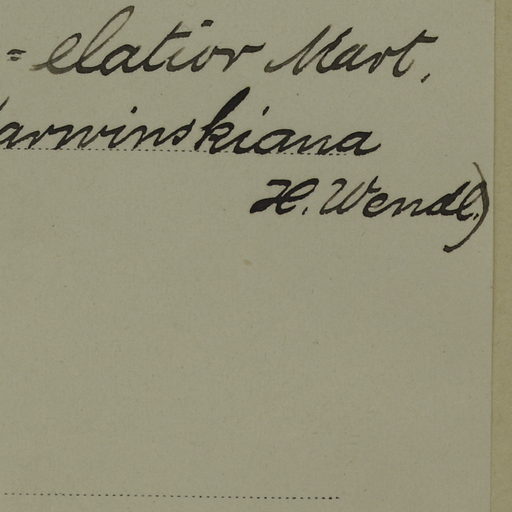 = elatior Mart.
Karwinskiana
H. Wendl.)